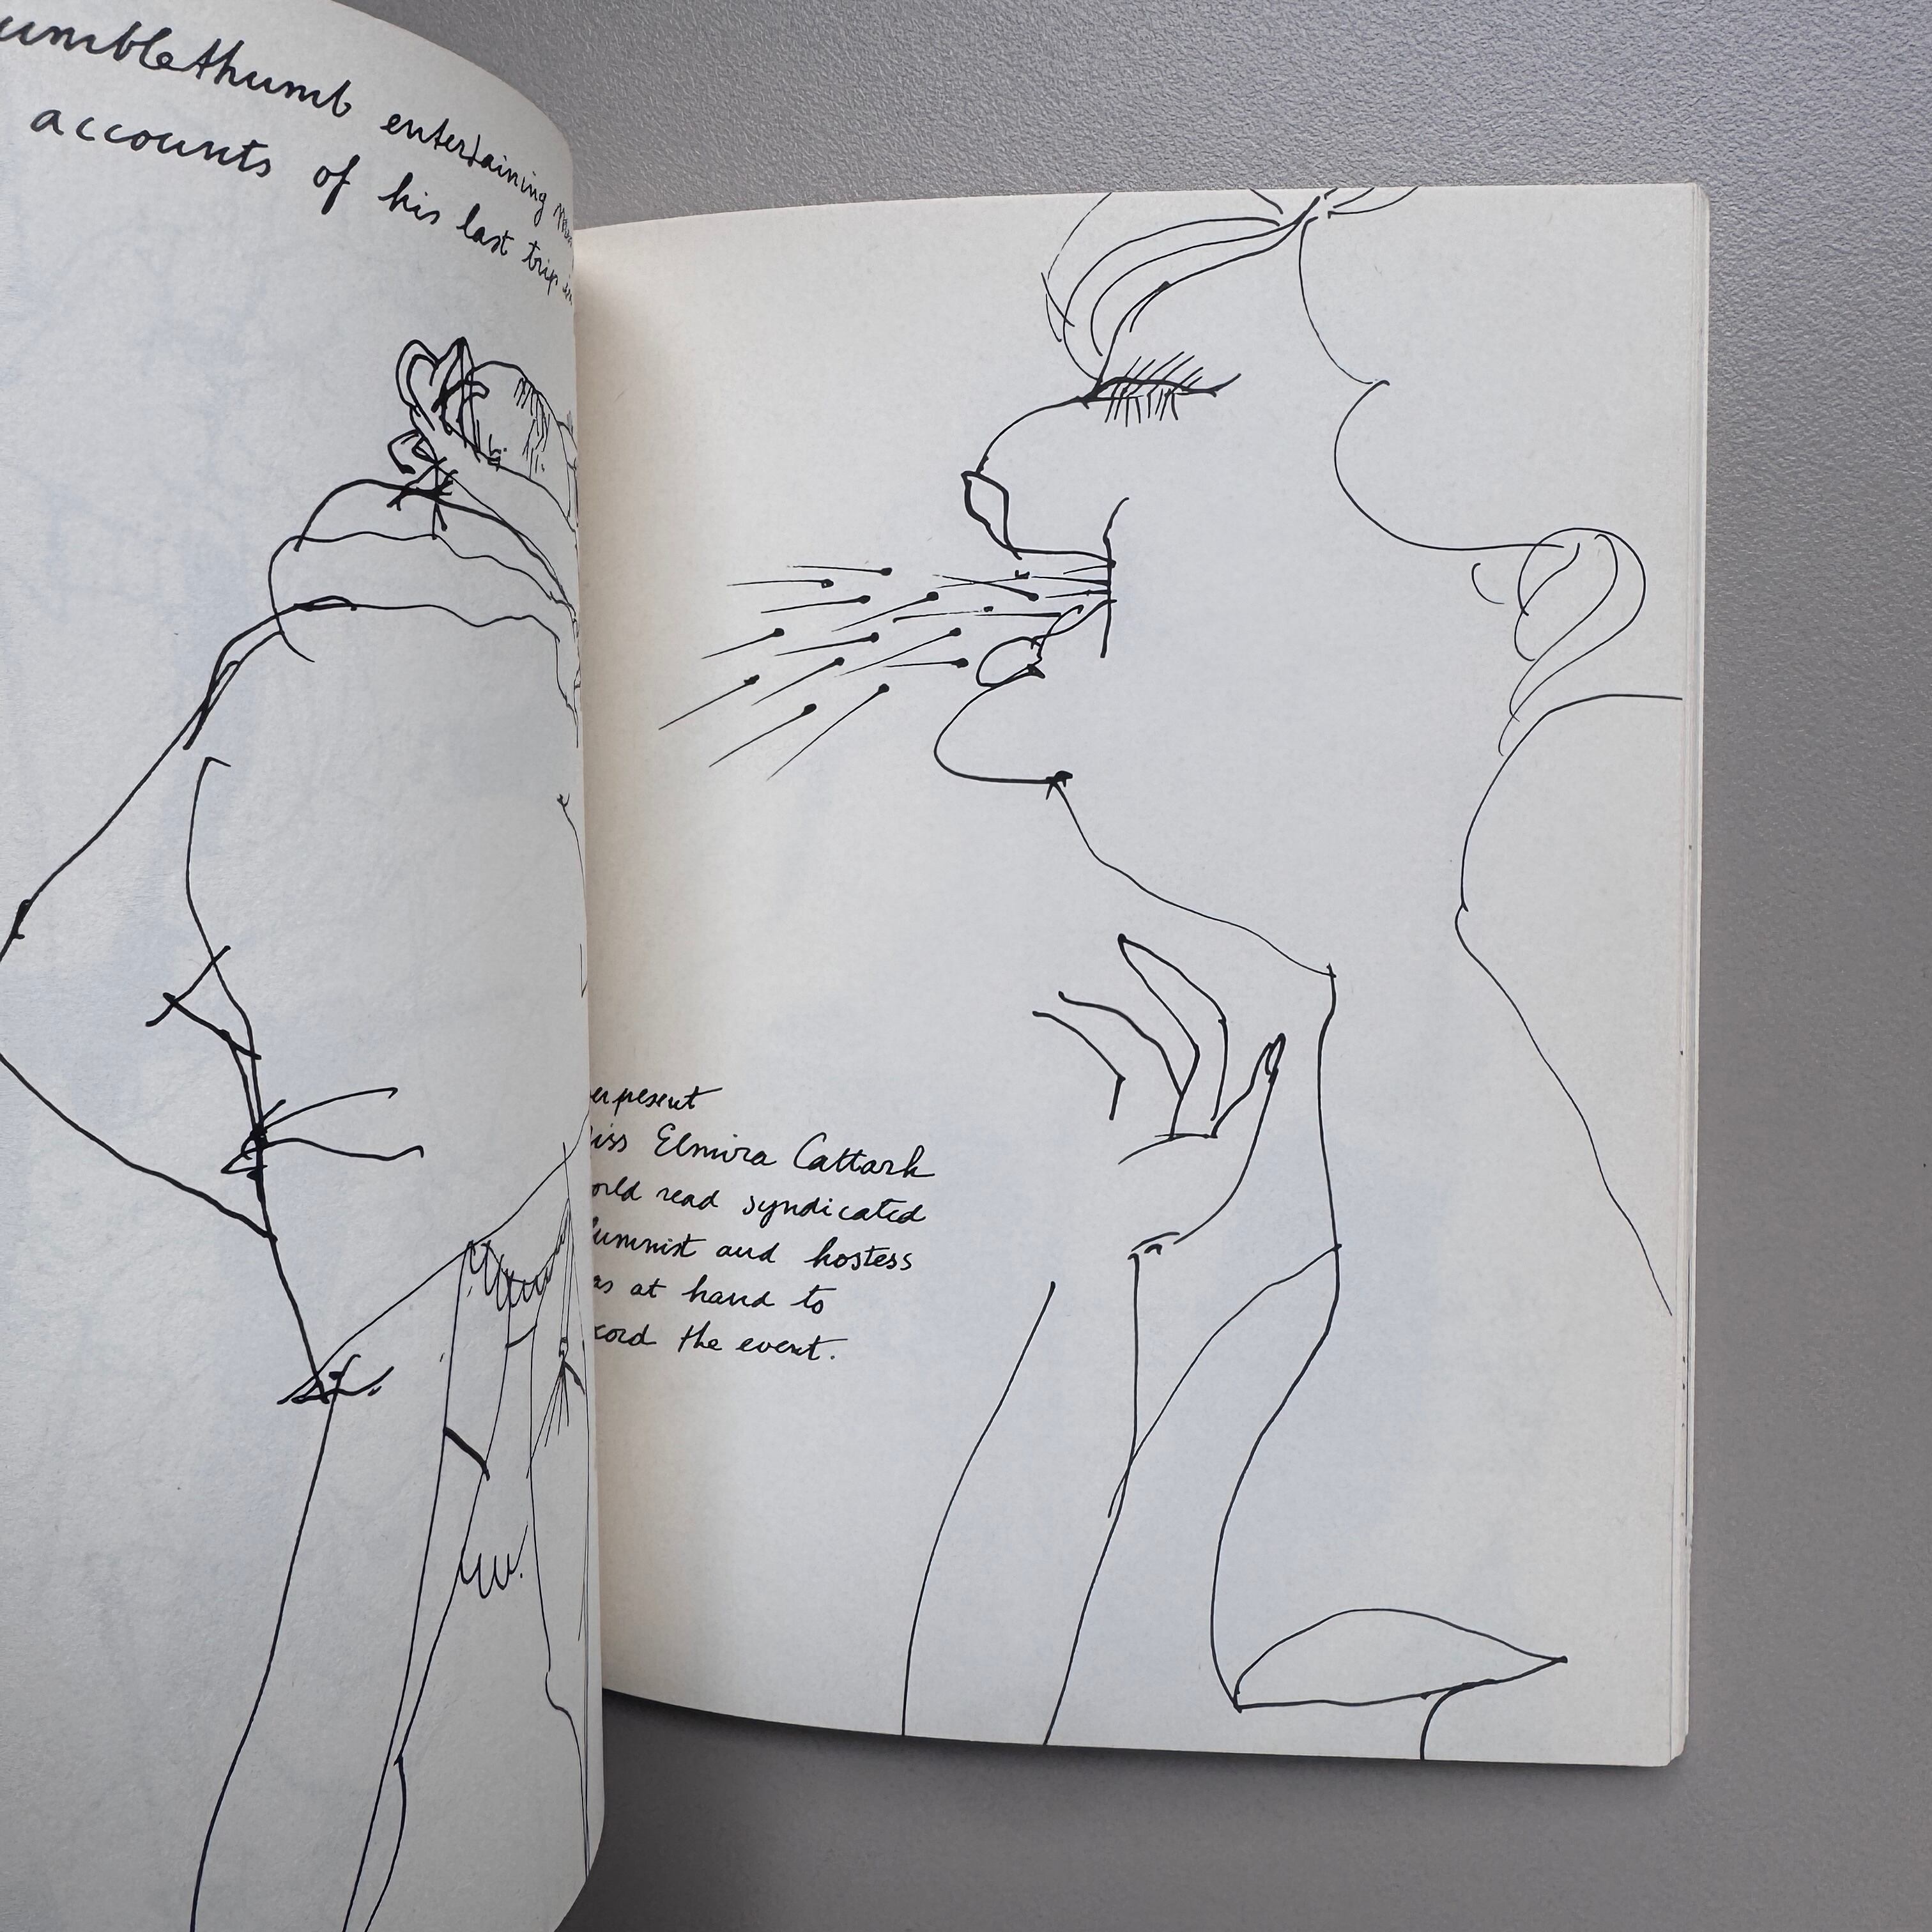 umblethumb entertaining
accounts of his last trip
er present
iss Elmira Cattark
orld read syndicated
lumnist and hostess
as at hand to
cord the event.